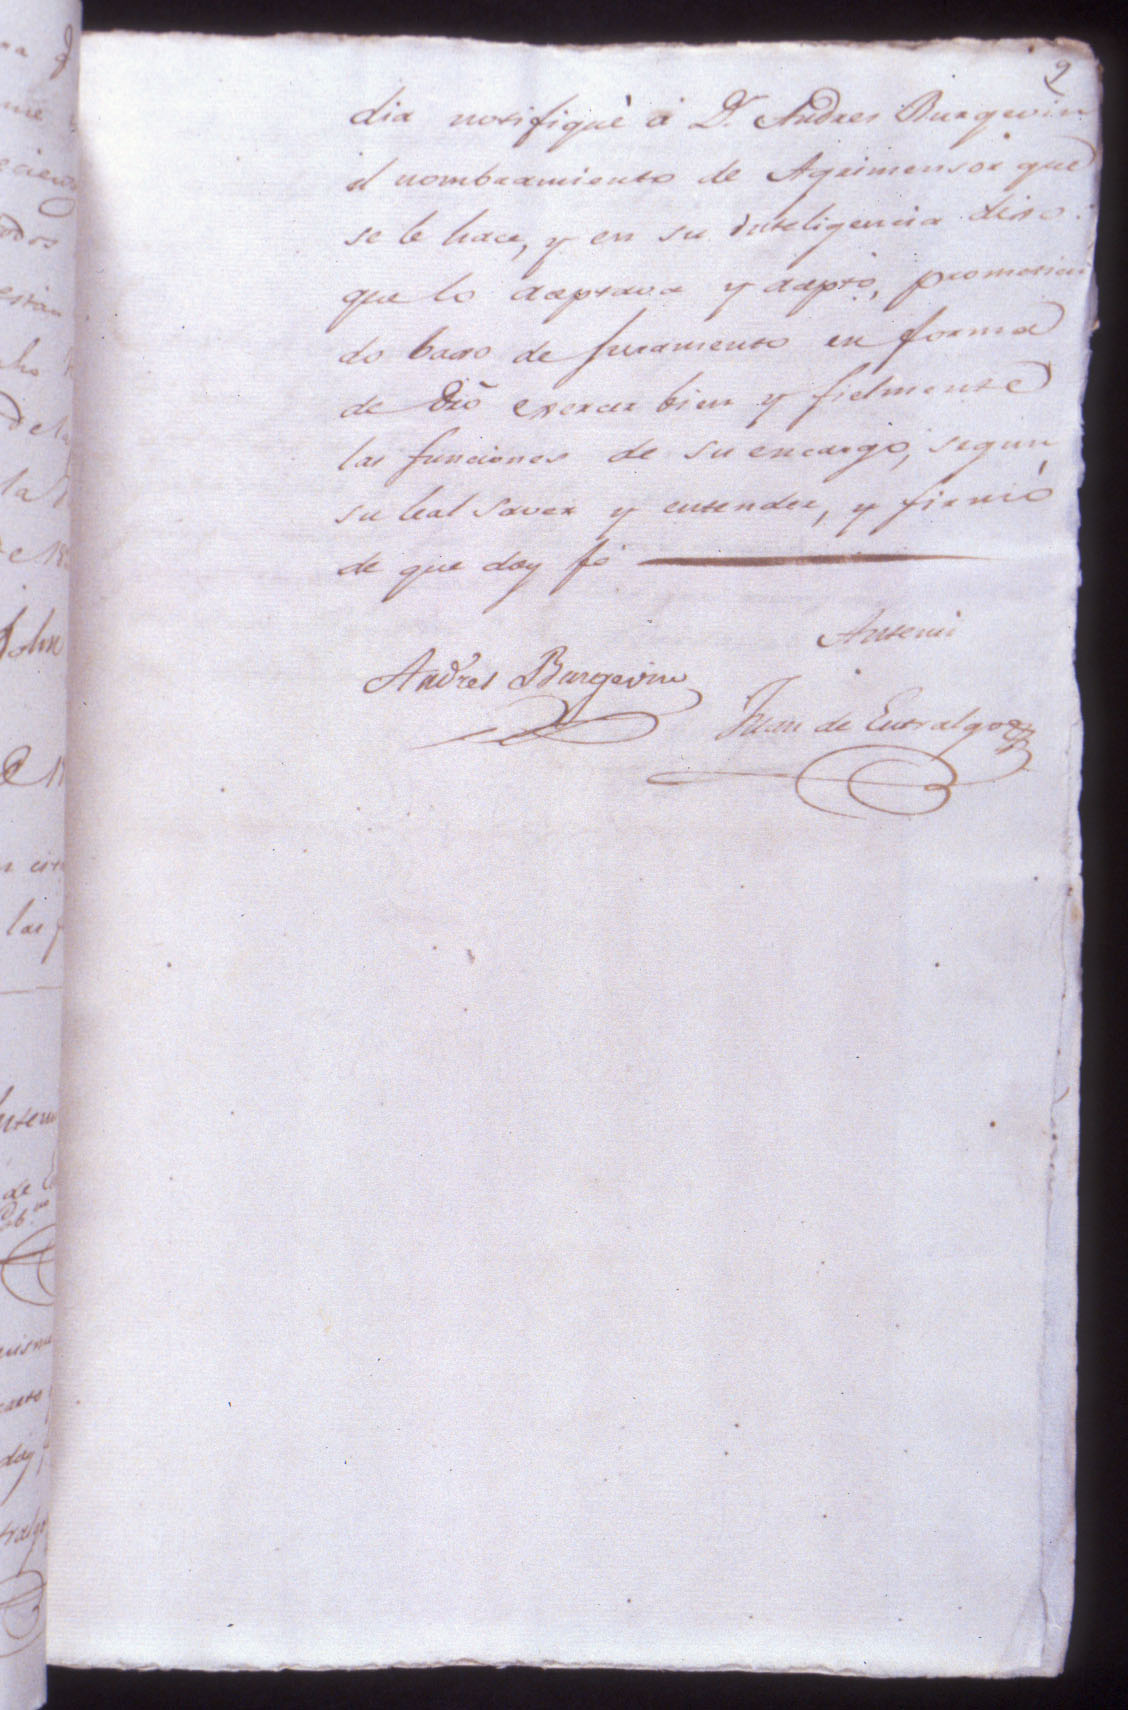 9
dia notifiquè á Dn. Andres Burgevin
el nombramiento de Agrimensor que
se le hace, y en su inteligencia dixo:
que lo aceptava y aceptó, prometien
do baxo de juramento en forma
de dró exercer bien y fielmente
las funciones de su encargo, segun
su leal saver y entender, y firmó
de que doy fé
Antemi
Andres Burgevin
Juan de Entralgo